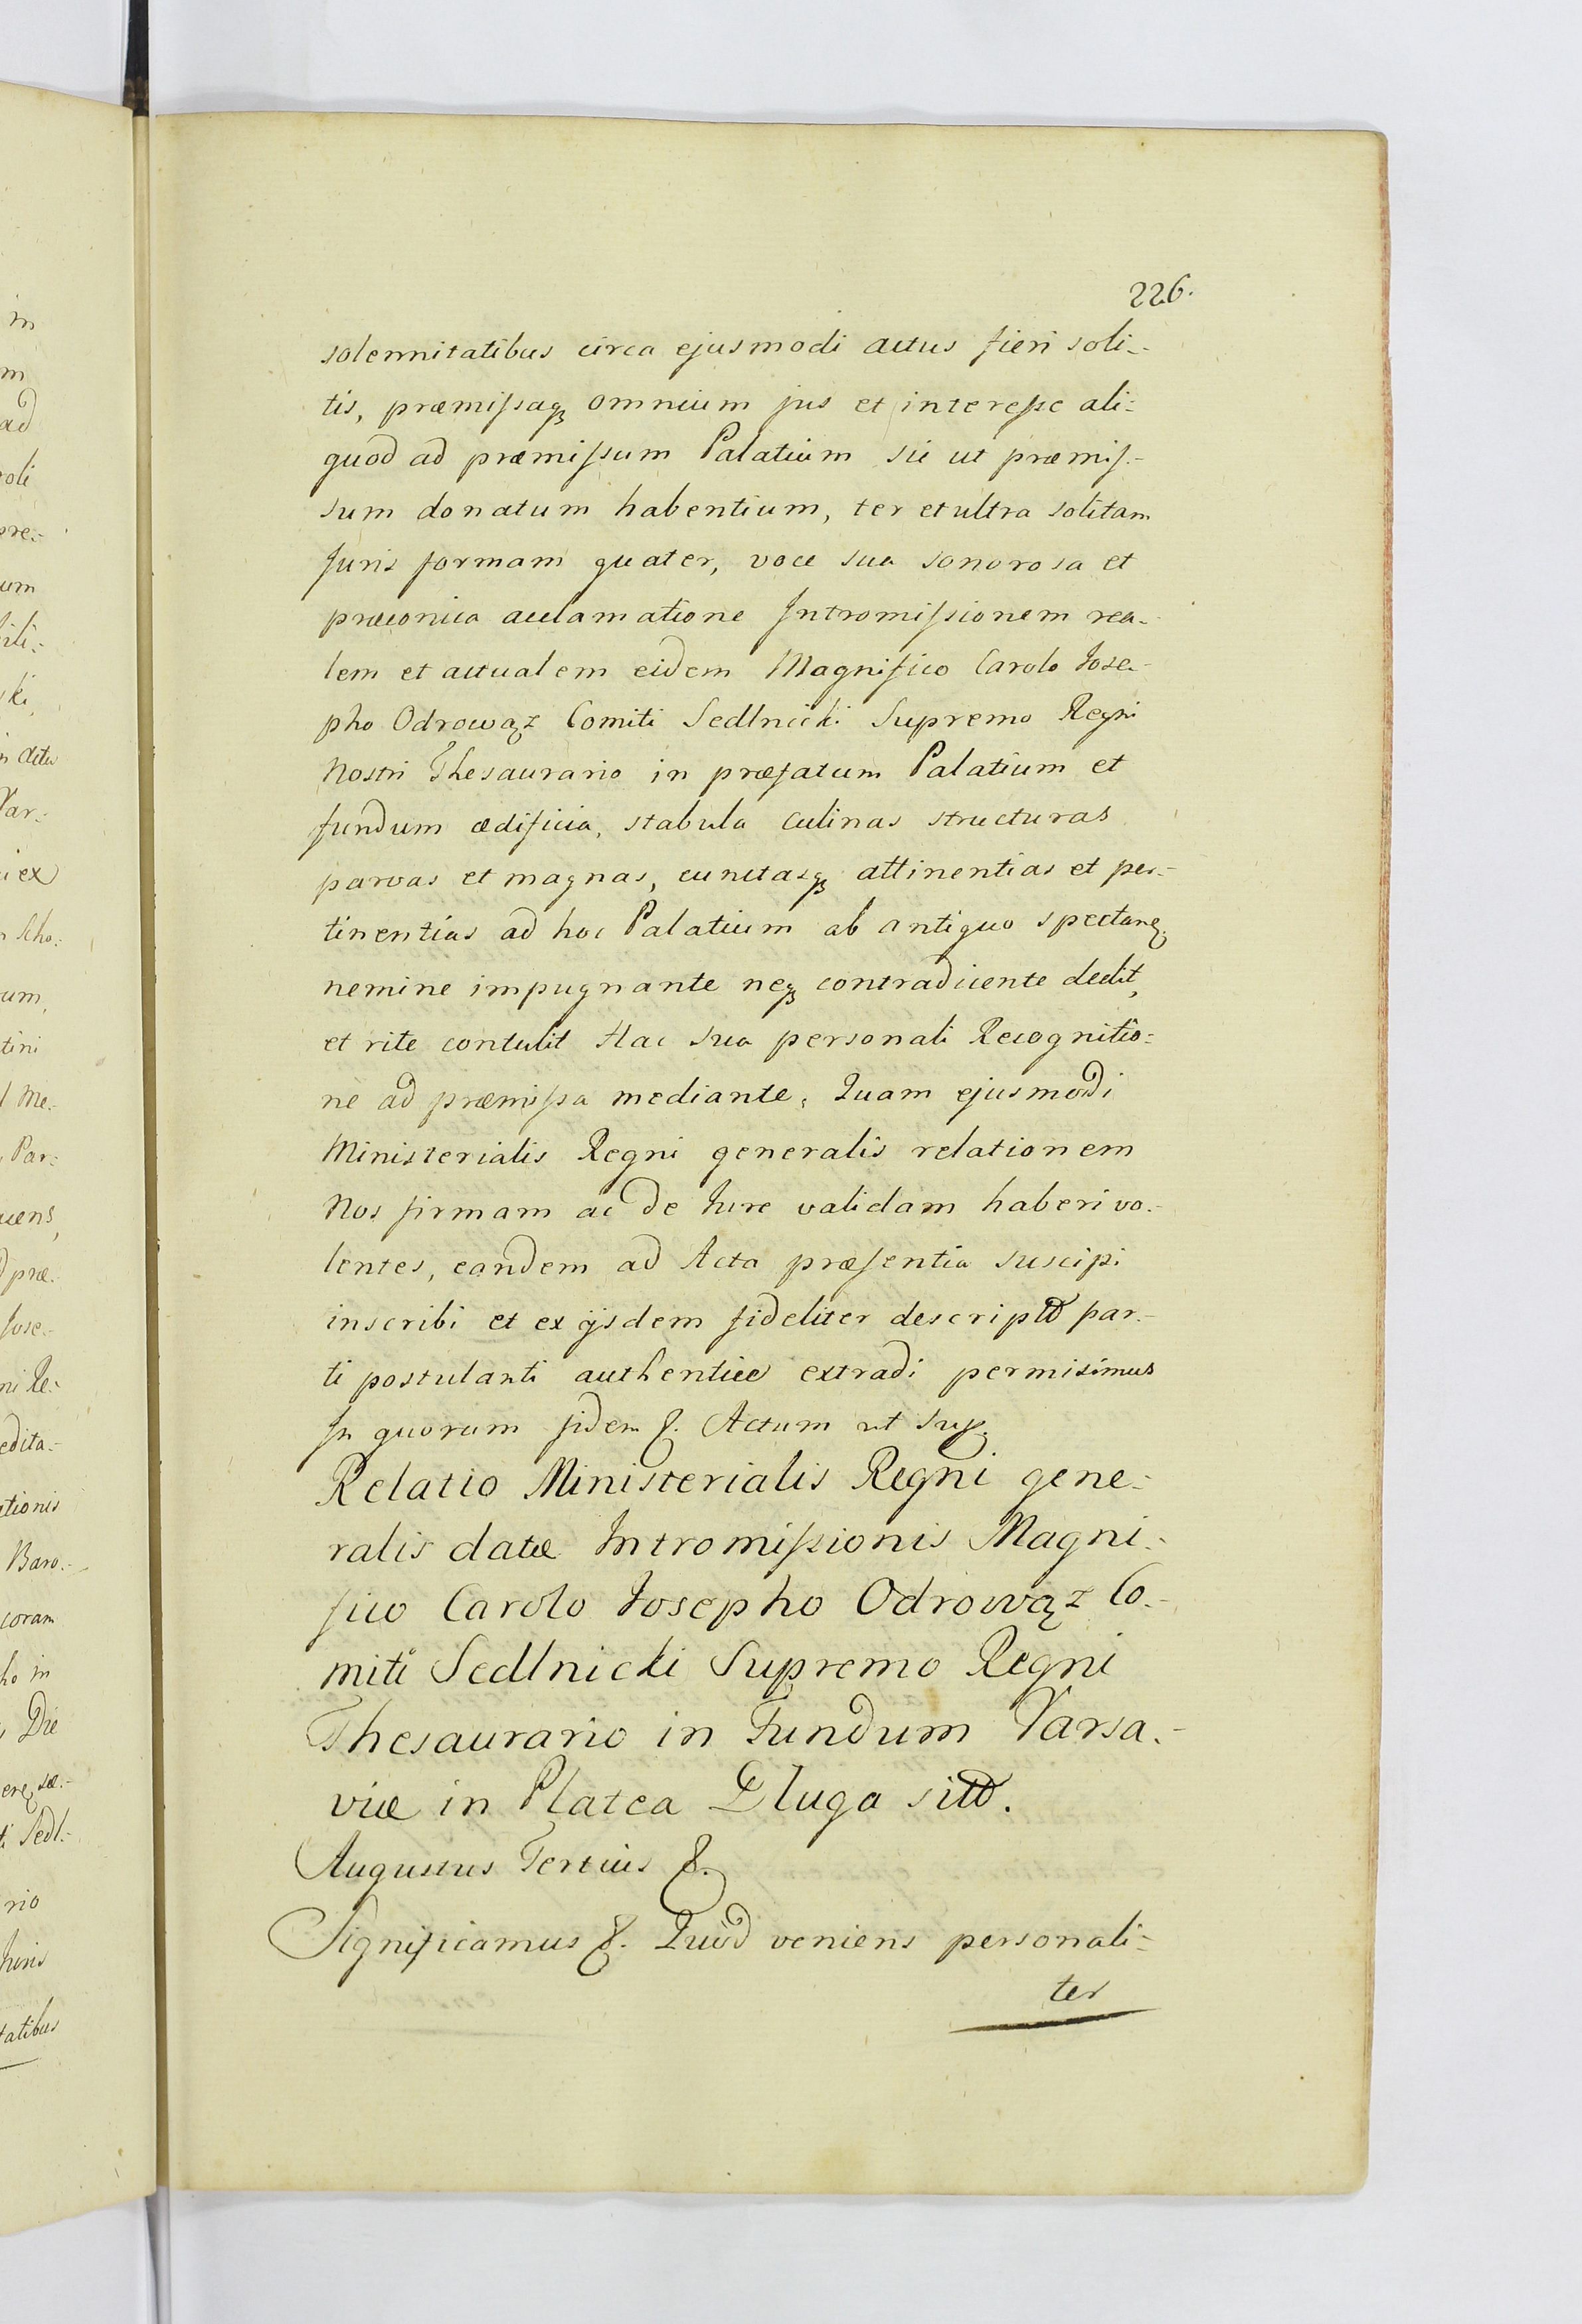 226.
solennitatibus circa ejusmodi actus fieri soli-
tis, præmissaqꝫ omnium jus et interesse ali-
quod ad præmissum Palatium sic ut præmis-
sum donatum habentium, ter et ultra solitam
Juris formam quater, voce sua sonorosa et
præconica acclamatione Intromissionem rea-
lem et actualem eidem Magnifico Carolo Jose-
pho Odrowąz Comiti Sedlnicki Supremo Regni
Nostri Thesaurario in præfatum Palatium et
fundum ædificia, stabula culinas structuras
parvas et magnas, cunctasqꝫ attinentias et per-
tinentias ad hoc Palatium ab antiquo spectanꝫ
nemine impugnante neqꝫ contradicente dedit,
et rite contulit Hac sua personali Recognitio-
ne ad præmissa mediante, Quam ejusmodi
Ministerialis Regni generalis relationem
Nos firmam ac de Jure validam haberi vo-
lentes, eandem ad Acta præsentia suscipi
inscribi et ex ijsdem fideliter descriptā par-
ti postulanti authentice extradi permisimus
In quorum fidem &. Actum ut sup.
Relatio Ministerialis Regni gene-
ralis datæ Intromissionis Magni-
fico Carolo Josepho Odrowąz Co-
miti Sedlnicki Supremo Regni
Thesaurario in Fundum Varsa-
viæ in Platea Dluga sitū.
Augustus Tertius &.
Significamus &. Quod veniens personali-
ter
in
m
ad
roli
pre-
um
ki,
n actis
Var-
i ex
n Scho-
rum,
tini
Me-
Par-
iens,
præ-
Jose-
ni Re-
edita-
ationis
Baro-
coram
ho in
Die
ti Sedl-
rio
Juris
tatibus